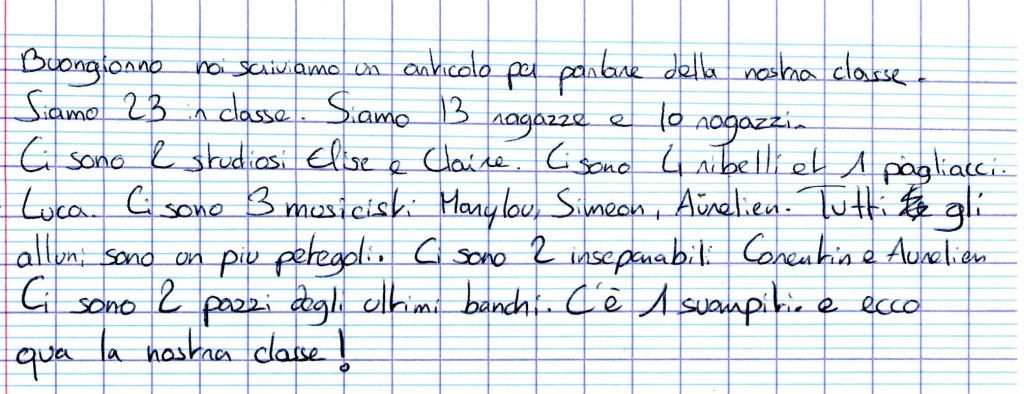 Buongiorno noi scriviamo un articolo per parlare della nostra classe.
Siamo 23 in classe. Siamo 13 ragazze e 10 ragazzi.
Ci sono 2 studiosi Elise e Claire. Ci sono 4 ribelli et 1 pagliacci.
Luca. Ci sono 3 musicisti Marylou, Simeon, Aürelien. Tutti gli
alluni sono un piu petegoli. Ci sono 2 inseparabili Corentin e Aurelien
Ci sono 2 pazzi degli ultimi banchi. C'è 1 svampiti. e ecco
qua la nostra classe!